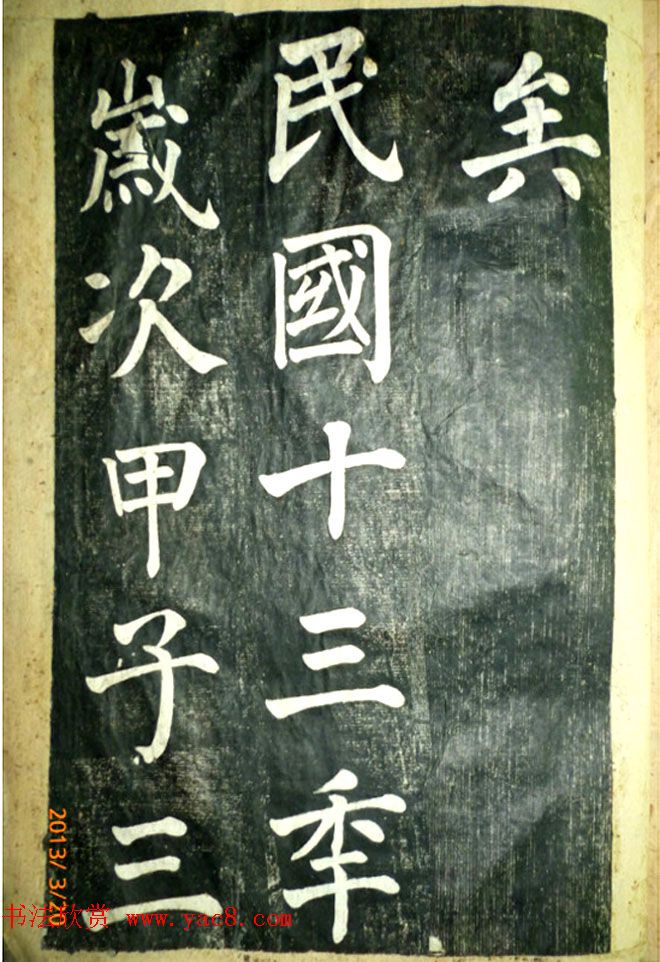 矣
民國十三秊
嵗次甲子三
2013/ 3/20
书法欣赏 www.yac8.com